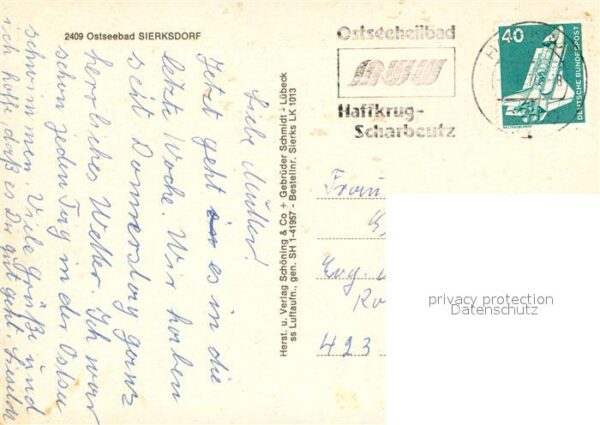 2409 Ostseebad SIERKSDORF
Liebe Mutter!
Jetzt geht es in die
letzte Woche. Wir haben
seit Donnerstag ganz
herrliches Wetter. Ich war
schon jeden Tag in der Ostsee
schwimmen. Viele Grüße und
ich hoffe daß es Dir gut geht!
Herst. u. Verlag Schöning & Co + Gebrüder Schmidt - Lübeck
ss Luftaufn., gen. SH 1-41957 - Bestellnr. Sierks LK 1013
Ostseeheilbad
Haffkrug-
Scharbeutz
40
DEUTSCHE BUNDESPOST
Frau
493
privacy protection
Datenschutz